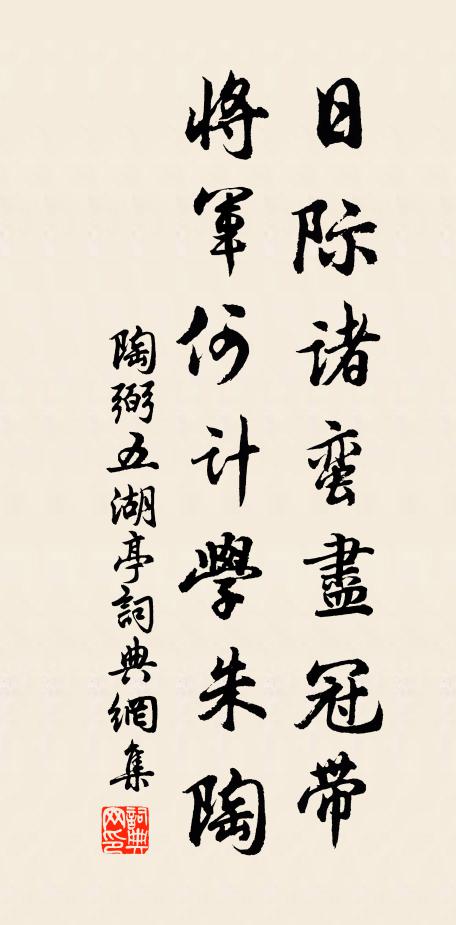 日际诸蛮盡冠带
将軍何计學朱陶
陶弼五湖亭詞典網集
詞典网印